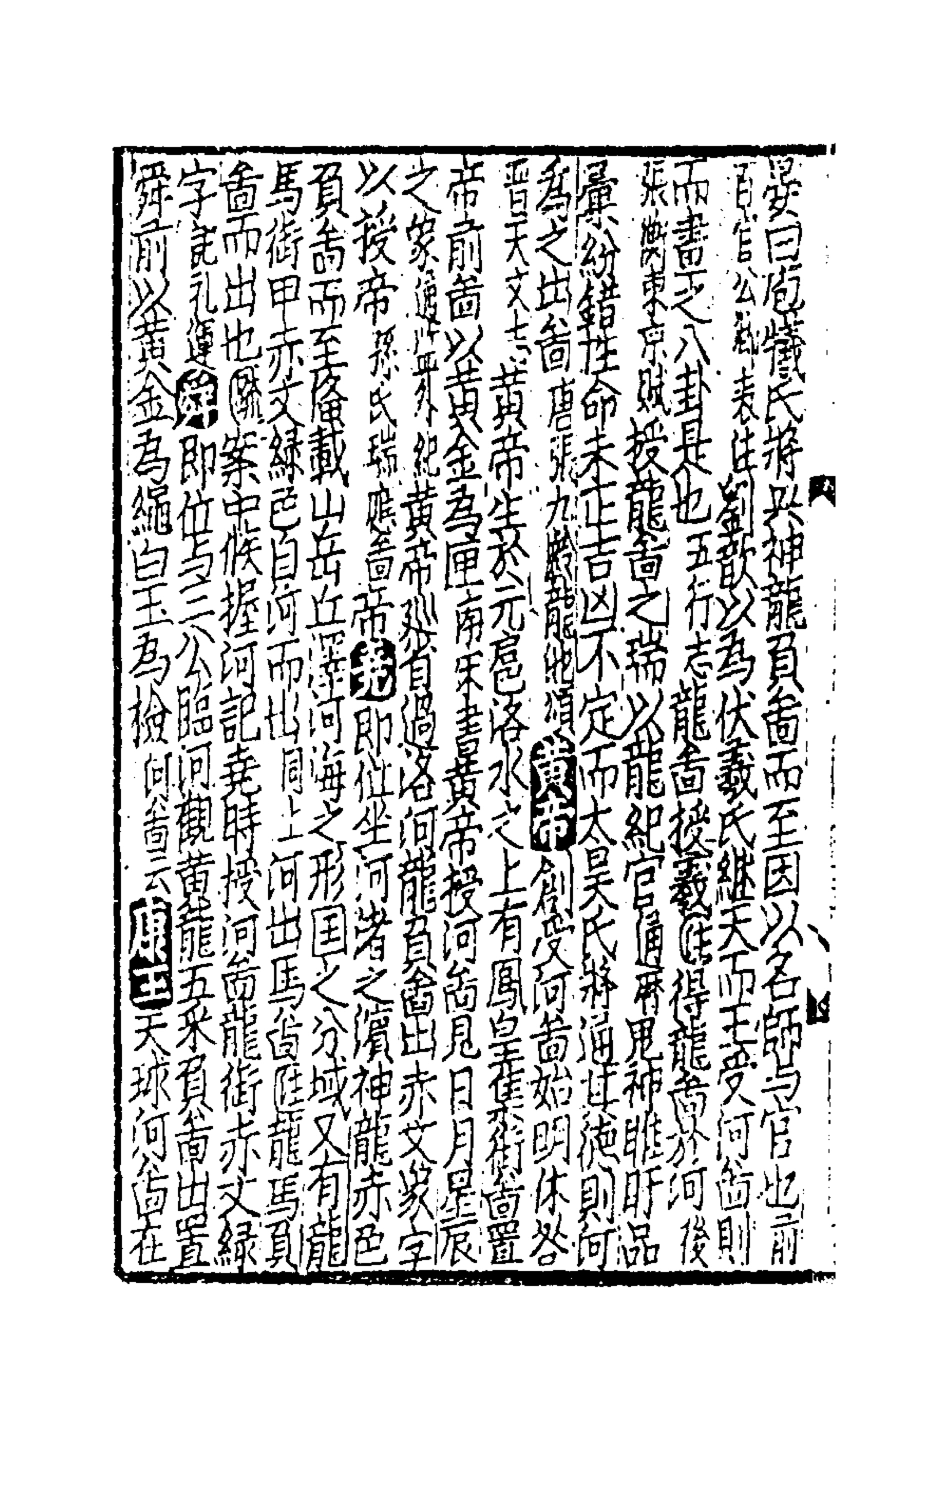 晏曰庖犧氏將興神龍負啚而至因以名師与官也前
百官公卿表注劉歆以為伏羲氏継天而王受河啚則
而畫之八卦是也五行志龍啚授羲注得龍啚於河後
張衡東京賦授龍啚之瑞以龍紀官通曆
彚紛錯性命未正吉凶不定而太昊氏將通其徳則河
為之出啚唐張九齡龍池頌黄帝創受河啚始明休咎
晋天文志黄帝生於元扈洛水之上有鳳皇隹銜啚置
帝前啚以黄金為匣黄帝授河啚見日月星辰
之象通外紀黄帝廵省過洛河龍負啚出赤文篆字
以授帝孫氏瑞應啚帝尭即位坐河渚之濵神龍赤色
負啚而至俻載山岳丘澤河海之形囯之分域又有龍
馬銜甲赤文緑色自河而出同上河出馬啚注龍馬負
啚而出也䟽案中候握河記尭時授河啚龍銜赤文緑
字記孔運舜即位与三公臨河觀黄龍五采負啚出置
舜前以黄金為繩白玉為檢河啚云康王天球河啚在